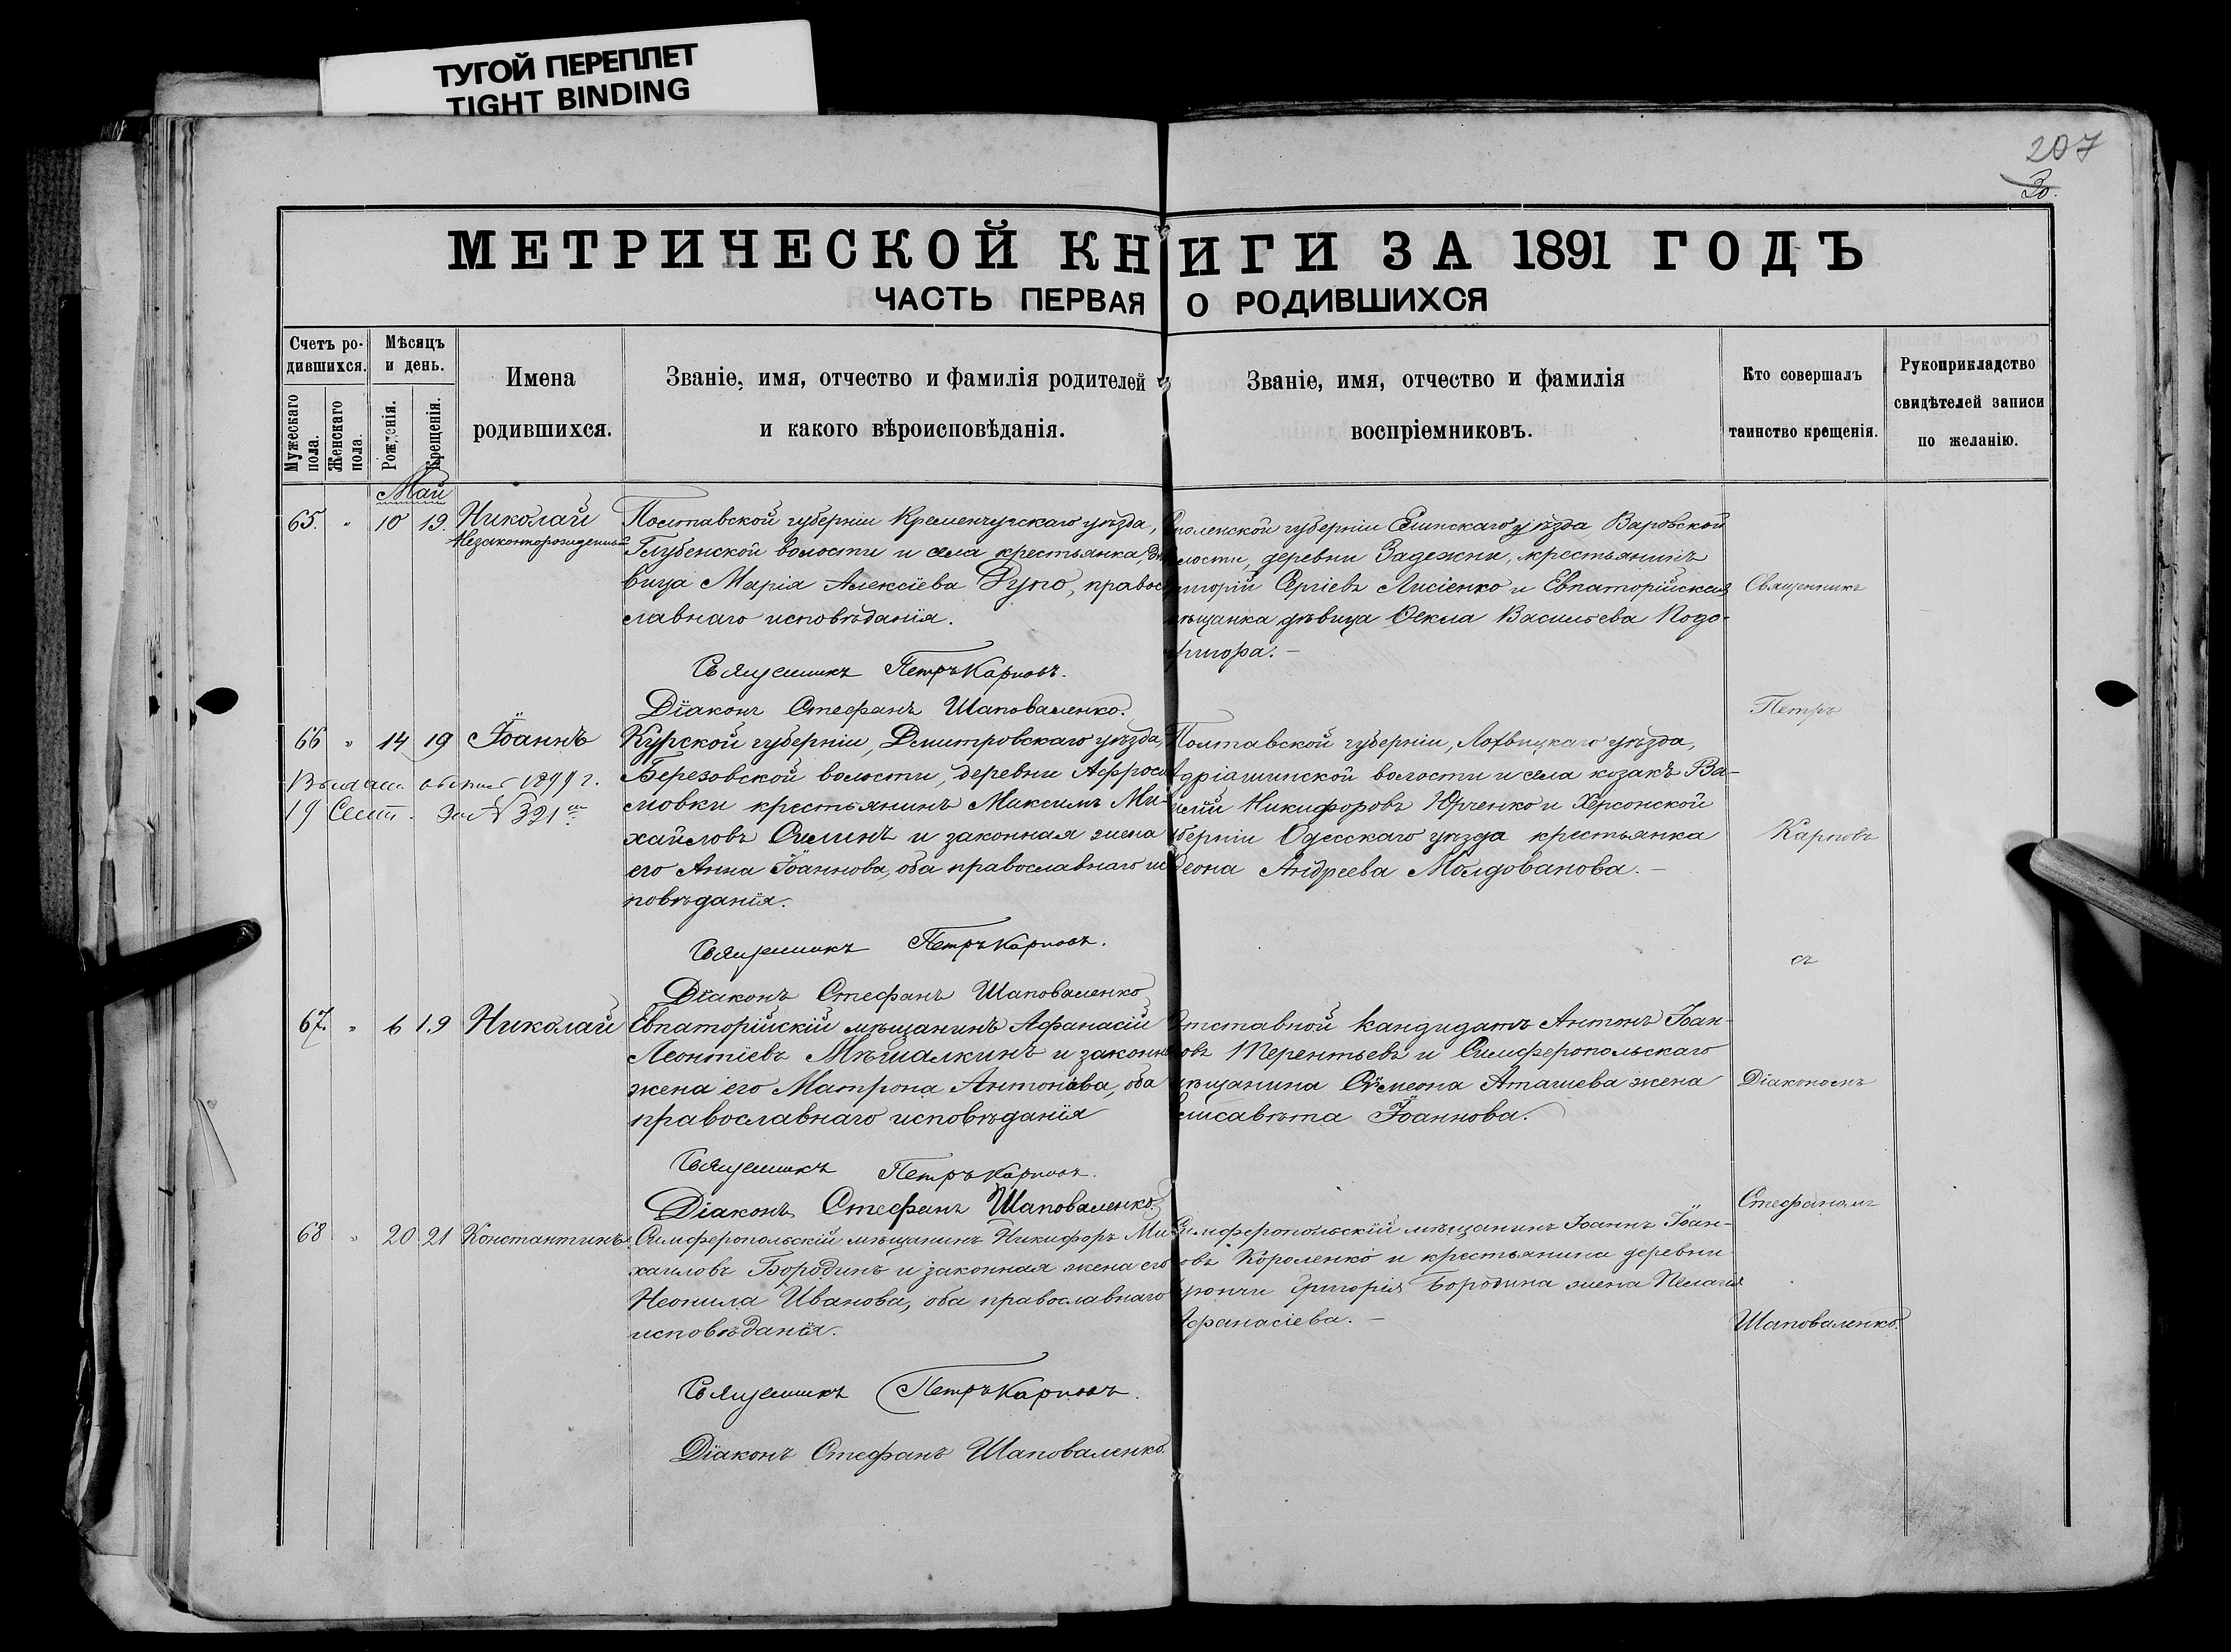 ТУГОЙ ПЕРЕПЛЕТ
TIGHT BINDING
207
30.
МЕТРИЧЕСКОЙ КНИГИ ЗА 1891 ГОДЪ
ЧАСТЬ ПЕРВАЯ О РОДИВШИХСЯ
Счетъ ро-
дившихся.
Мужескаго
пола.
Женскаго
пола.
Мѣсяцъ
и день.
Рожденія.
Крещенія.
Имена
родившихся.
Званіе, имя, отчество и фамилія родителей
и какого вѣроисповѣданія.
Званіе, имя, отчество и фамилія
воспріемниковъ.
Кто совершалъ
таинство крещенія.
Рукоприкладство
свидѣтелей записи
по желанію.
Май
65. " 10 19. Николай
Незаконнорожденный
Полтавской губерніи Кременчугскаго уѣзда,
Глубенской волости и села крестьянка, дѣ
вица Марія Алексіева, правос
славнаго исповѣданія.
Священникъ Петръ Карповъ.
Діаконъ Стефанъ Шаповаленко.
моленской губерніи Ельнскаго уѣзда Варовской
лости, деревни Задежни, крестьянинъ
игорій Сергіевъ Лисіенко и Евпаторійская
мѣщанка дѣвица Ѳекла Васильева Подо-
пригора. –
66 " 14 19 Іоаннъ
19 Сент. За № 321м
Курской губерніи, Дмитровскаго уѣзда,
Березовской волости, деревни Афроси
мовки крестьянинъ Максимъ Ми-
хайловъ Силинъ и законная жена
его Анна Іоаннова, оба православнаго ис
повѣданія.
Священникъ Петръ Карповъ.
Діаконъ Стефанъ Шаповаленко
Полтавской губерніи, Лохвицкаго уѣзда,
волости и села козакъ Ва-
силій Никифоровъ Юрченко и Херсонской
губерніи Одесскаго уѣзда крестьянка
Андреева Молдованова. –
67. " 6 19 Николай
Евпаторійскій мѣщанинъ Афанасій
Леонтіевъ Мѣшалкинъ и законн
жена его Матрона Антонова, оба
православнаго исповѣданія
Священникъ Петръ Карповъ.
Діаконъ Стефанъ Шаповаленко.
Отставной кандидатъ Антонъ Іоан-
овъ Терентьевъ и Симферопольскаго
мѣщанина Сѵмеона Аташева жена
Елисавѣта Іоаннова.
68 " 20 21 Константинъ
Симферопольскій мѣщанинъ Никифоръ Ми
хаиловъ Бородинъ и законная жена его
Неонила Иванова, оба православнаго
исповѣданія.
Священникъ Петръ Карповъ.
Діаконъ Стефанъ Шаповаленко.
Симферопольскій мѣщанинъ Іоаннъ Іоан-
овъ Короленко и крестьянина деревни
Григорія Бородина жена Пелагія
Афанасіева. –
Священникъ
Петръ
Карповъ
съ
Діакономъ
Стефаномъ
Шаповаленко.